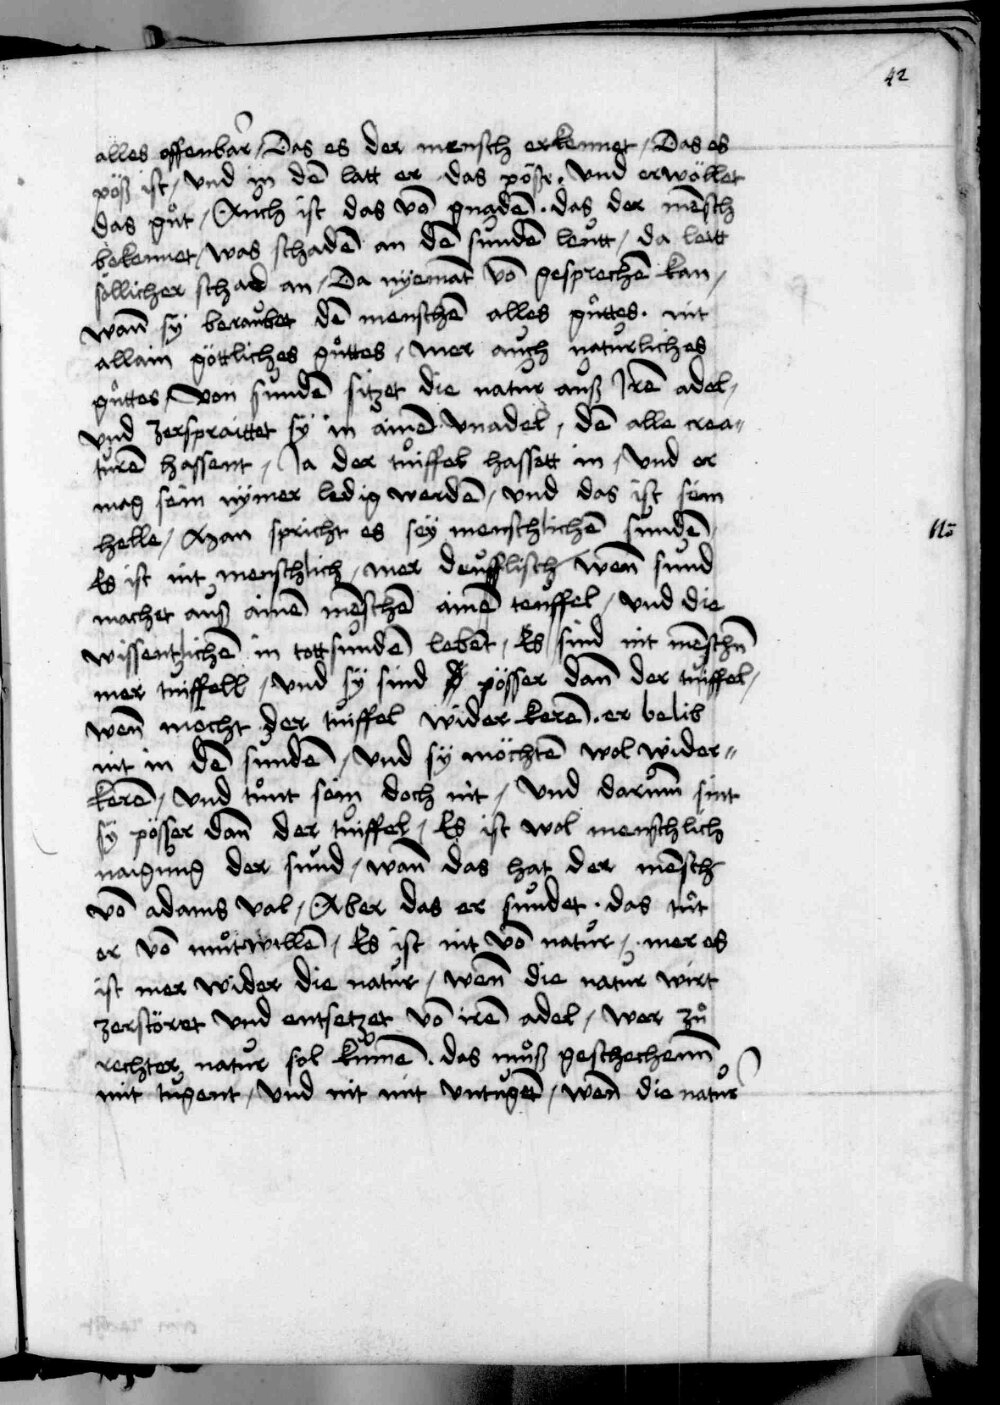 42
alles offenbar / Das es der mensch erkennet / Das es
pöß ist / vnd in dē latt er das pöße. vnd erwöllet
das gůt / Auch ist das vō gnadē. das der mēsch
bekennet / was schadē an dē sundē leitt / da leitt
söllicher schad an / Da nyemāt vō gesprechē kan /
wañ sy beraubet dē menschē alles gůttes. nit
allain göttliches gůttes / mer auch naturliches
gůttes / Von sundē sitzet die natur auß Irē adel /
vnd zerspraittet sÿ in ainē vnadel / dē alle crea=
turē hassent / Ja der tuiffel hassett in / vnd er
mag sein nÿmer ledig werdē / vnd das ist sein
helle / Man spricht es seÿ menschlichē sundē / 
Es ist nit menschlich / mer deufflisch / weñ sund
machet auß ainē mēschē ainē teuffel / vnd die
wissentlichē in tottsundē lebēt / Es sind nit mēschñ
mer tuiffell / vnd sÿ sind pösser dañ der tuiffel /
weñ möcht der tuiffel wider kerē. er belib
nit in dē sundē / vnd sÿ möchtē wol wider=
kerē / vnd tůnt sein doch nit / vnd darům̄ sint
sÿ pösser dañ der tuiffel / Es ist wol menschlich
naigung der sund / wañ das hat der mēsch
vō adams val / Aber das er sundet. das tůt
er vō můtwillē / Es ist nit vō natur / mer es
ist mer wider die natur / weñ die natur wirt
zerstöret vnd entsetzet vō irē adel / wer zů
rechter natur sol kumē. das můß geschechenn̄
mit tugent / vnd nit mit vntugēt / weñ die natur